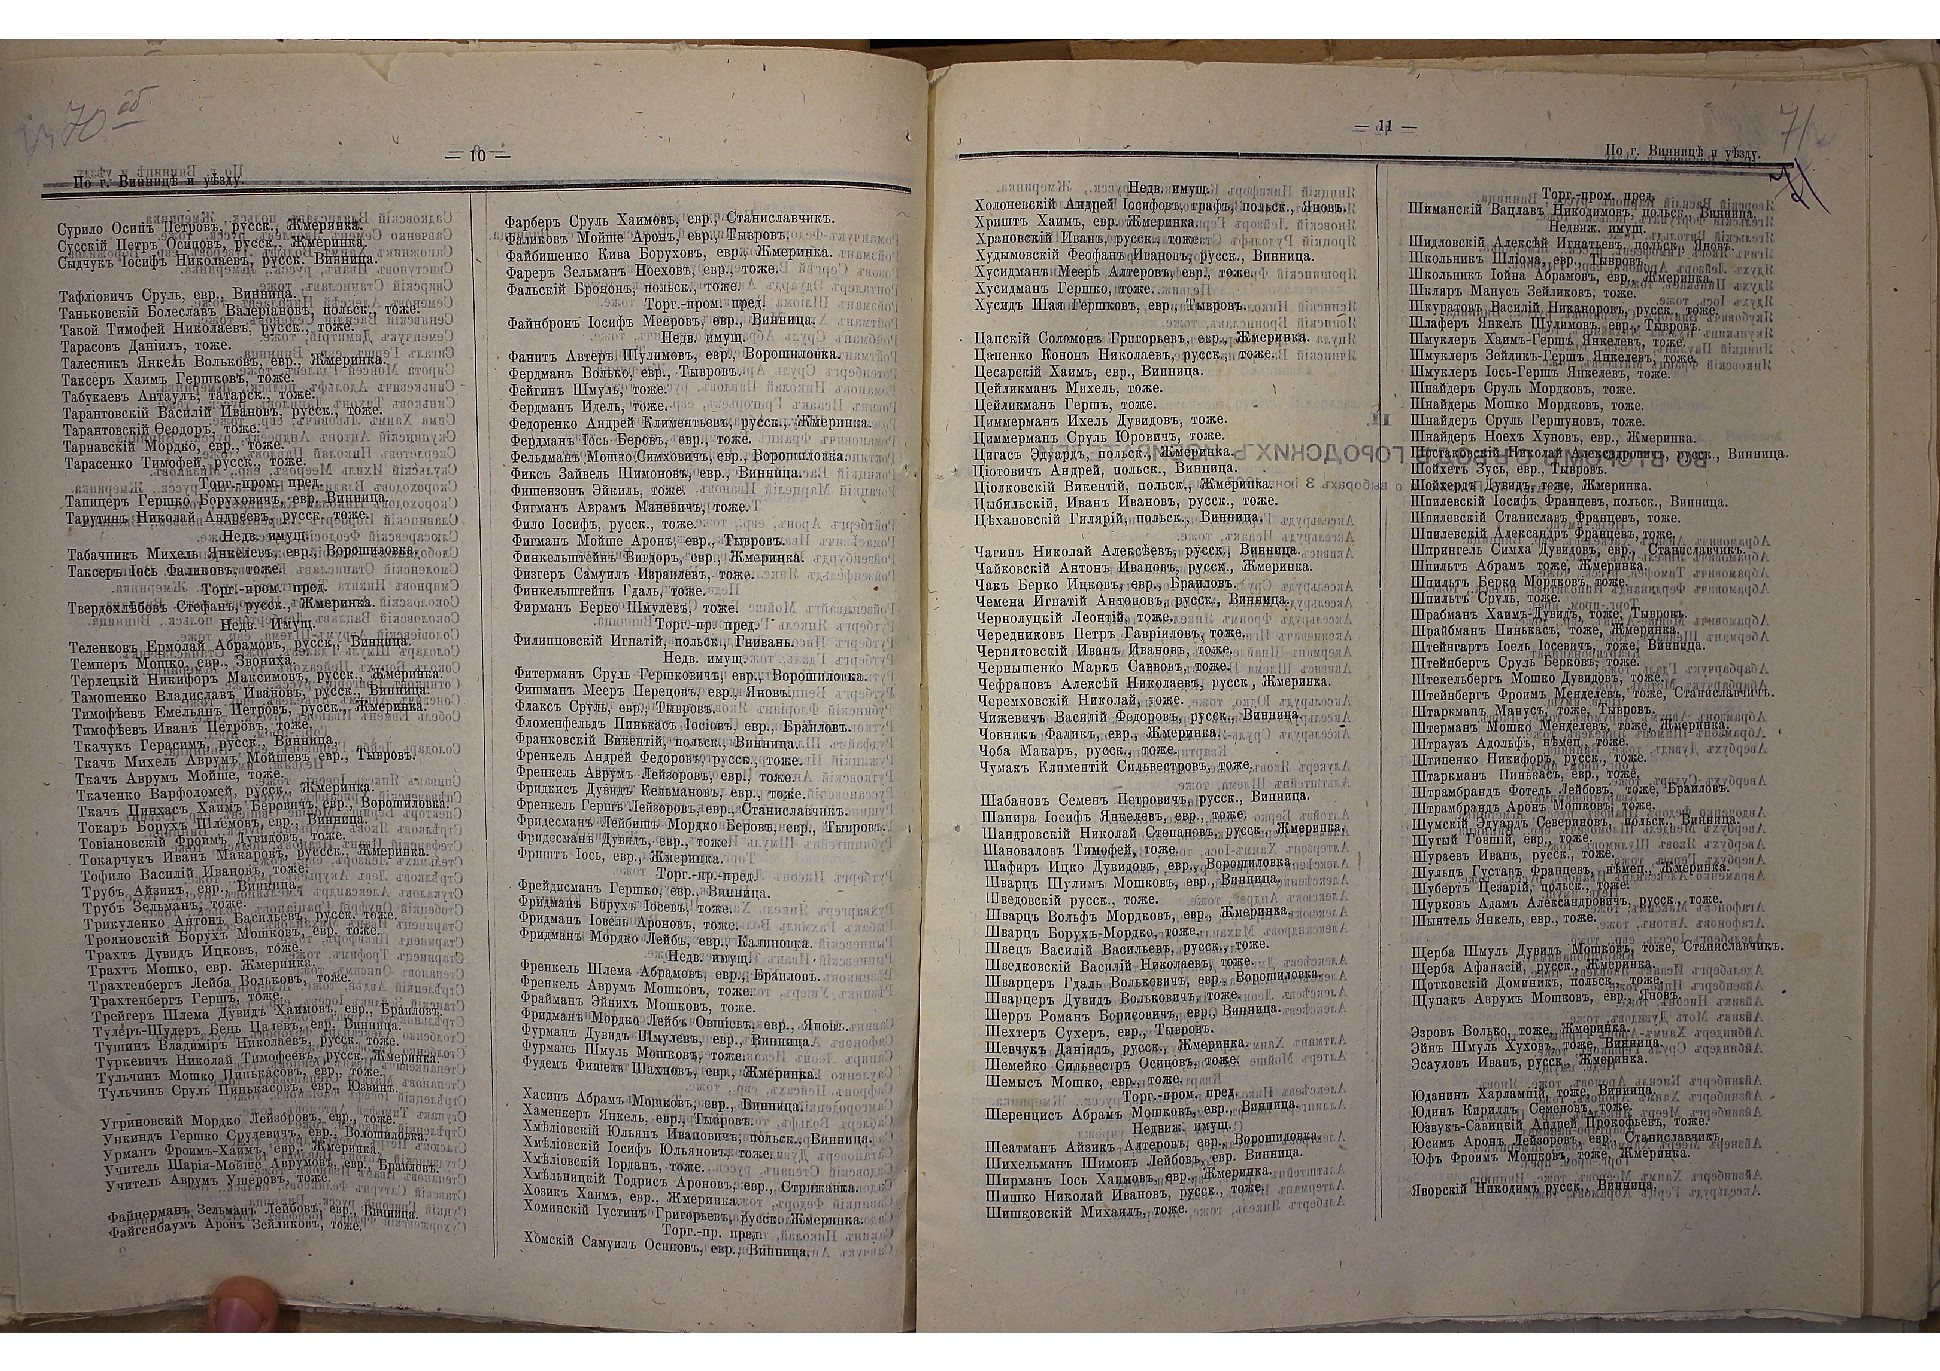 70 об
— 10 —
По г. Винницѣ и уѣзду.
Сурило Осипъ Петровъ, русск., Жмеринка.
Сусскій Петръ Осиповъ, русск., Жмеринка.
Сыдчукъ Іосифъ Николаевъ, русск. Винница.
Тафліовичъ Сруль, евр., Винница.
Таньковскій Болеславъ Валеріановъ, польск., тоже.
Такой Тимофей Николаевъ, русск., тоже.
Тарасовъ Даніилъ, тоже.
Талесникъ Янкель Вольковъ, евр., Жмеринка.
Таксеръ Хаимъ Гершковъ, тоже.
Табукаевъ Антаулъ, татарск., тоже.
Тарантовскій Василій Ивановъ, русск., тоже.
Тарантовскій Ѳеодоръ, тоже.
Тарнавскій Мордко, евр., тоже.
Тарасенко Тимофей, русск., тоже.
Торг.-пром. пред.
Тапицеръ Гершко Боруховичъ, евр, Винница.
Тарутинъ Николай Андреевъ, русск., тоже.
Недв. имущ.
Табачникъ Михель Янкелевъ, евр., Ворошиловка.
Таксеръ Іось Фаликовъ, тоже.
Торг.-пром. пред.
Твердохлѣбовъ Стефанъ, русск., Жмеринка.
Недв. Имущ.
Теленковъ Ермолай Абрамовъ, русск., Винница.
Темперъ Мошко, евр. Звониха.
Терлецкій Никифоръ Максимовъ, русск., Жмеринка.
Тамошенко Владиславъ Ивановъ, русск., Винница.
Тимофѣевъ Емельянъ Петровъ, русск., Жмеринка.
Тимофѣевъ Иванъ Петровъ, тоже.
Ткачукъ Герасимъ, русск., Винница.
Ткачъ Михель Аврумъ Мойшевъ, евр., Тывровъ.
Ткачъ Аврумъ Мойше, тоже.
Ткаченко Варфоломей, русск., Жмеринка.
Ткачъ Пинхасъ Хаимъ Беровичъ, евр., Ворошиловка.
Токаръ Борухъ Шлемовъ, евр., Винница.
Товіановскій Фроимъ Дувидовъ, тоже.
Токарчукъ Иванъ Макаровъ, русск., Жмеринка.
Тофило Василій Ивановъ, тоже.
Трубъ Айзикъ, евр., Винница.
Трубъ Зельманъ, тоже.
Трикуленко Антонъ Васильевъ, русск. тоже.
Трояновскій Борухъ Мошковъ, евр. тоже.
Трахтъ Дувидъ Ицковъ, тоже.
Трахтъ Мошко, евр. Жмеринка.
Трахтенбергъ Лейба Вольковъ, тоже.
Трахтенбергъ Гершъ, тоже.
Трейгеръ Шлема Дувидъ Хаимовъ, евр., Браиловъ.
Тулеръ-Шулеръ Бенъ Цалевъ, евр. Винница.
Тушинъ Владиміръ Николаевъ, русск. тоже.
Туркевичъ Николай Тимофеевъ, русск. Жмеринка.
Тульчинъ Мошко Пинькасовъ, евр., тоже.
Тульчинъ Сруль Пинькасовъ, евр., Юзвинъ.
Угриновскій Мордко Лейзоровъ, евр., тоже.
Ункиндъ Гершко Срулевичъ, евр., Волошиловка.
Урманъ Фроимъ-Хаимъ, евр., Жмеринка.
Учитель Шарія-Мойше Аврумовъ, евр., Браиловъ.
Учитель Аврумъ Ушеровъ, тоже.
Файнерманъ Зельманъ Лейбовъ, евр., Винница.
Файгенбаумъ Аронъ Зейликовъ, тоже.
Фарберъ Сруль Хаимовъ, евр., Станиславчикъ.
Фаликовъ Мойше Аронъ, евр., Тывровъ.
Файбишенко Кива Боруховъ, евр., Жмеринка.
Фареръ Зельманъ Ноеховъ, евр., тоже.
Фальскій Бронон., польск., тоже.
Торг.-пром. пред.
Файнбронъ Іосифъ Мееровъ, евр., Винница.
Недв. имущ.
Фанитъ Автеръ Шулимовъ, евр., Ворошиловка.
Фердманъ Волько, евр., Тывровъ.
Фейгинъ Шмуль, тоже.
Фердманъ Идель, тоже.
Федоренко Андрей Климентьевъ, русск., Жмеринка.
Фердманъ Іось Беровъ, евр., тоже.
Фельдманъ Мошко Симховичъ, евр., Ворошиловка.
Фиксъ Зайвель Шимоновъ, евр., Винница.
Фишензонъ Эйкиль, тоже.
Фигманъ Аврамъ Маневичъ, тоже.
Фило Іосифъ, русск., тоже.
Фигманъ Мойше Аронъ, евр., Тывровъ.
Финкельштейнъ Вигдоръ, евр., Жмеринка.
Физгеръ Самуилъ Израилевъ, тоже.
Финкельштейнъ Гдаль, тоже.
Фирманъ Берко Шмулевъ, тоже.
Торг.-пр. пред.
Филипповскій Игнатій, польск., Гнивань.
Недв. имущ.
Фитерманъ Сруль Гершковичъ, евр., Ворошиловка.
Фишманъ Месръ Перецовъ, евр., Яновъ.
Флаксъ Сруль, евр., Тывровъ.
Фломенфельдъ Пинькасъ Іосіовъ, евр., Браиловъ.
Франковскій Викентій, польск., Винница.
Френкель Андрей Федоровъ, русск., тоже.
Френкель Аврумъ Лейзоровъ, евр., тоже.
Фридкисъ Дувидъ Кельмановъ, евр., тоже.
Френкель Гершъ Лейзоровъ, евр., Станиславчикъ.
Фридесманъ Лейбишъ Мордко Беровъ, евр., Тывровъ.
Фридесманъ Дувилъ, евр., тоже.
Фриштъ Іось, евр., Жмеринка.
Торг.-пр.-пред.
Фрейдисманъ Гершко, евр., Винница.
Фридманъ Борухъ Іосевъ, тоже.
Фридманъ Іовель Ароновъ, тоже.
Фридманъ Мордко Лейбъ, евр., Калиновка.
Недв. имущ.
Френкель Шлема Абрамовъ, евр., Браиловъ.
Френкель Аврумъ Мошковъ, тоже.
Фрайманъ Эйнихъ Мошковъ, тоже.
Фридманъ Мордко Лейбъ Овшіевъ, евр., Яновъ.
Фурманъ Дувидъ Шмулевъ, евр., Винница.
Фурманъ Шмуль Мошковъ, тоже.
Фудемъ Фишель Шахновъ, евр., Жмеринка.
Хасинъ Абрамъ Мошковъ, евр., Винница.
Хаменкеръ Янкель, евр., Тывровъ.
Хмѣліовскій Юльянъ Ивановичъ, польск., Винница.
Хмѣліовскій Іосифъ Юльяновъ, тоже.
Хмѣліовскій Іорданъ, тоже.
Хмѣльницкій Тодрисъ Ароновъ, евр., Стрижавка.
Хозикъ Хаимъ, евр., Жмеринка.
Хоминскій Іустинъ Григорьевъ, русск., Жмеринка.
Торг.-пр. пред.
Хомскій Самуилъ Осиповъ, евр., Винница.
71
— 11 —
По г. Винницѣ и уѣзду.
71
Недв. имущ.
Холоневскій Андрей Іосифовъ, графъ, польск., Яновъ.
Хриштъ Хаимъ, евр. Жмеринка.
Храновскій Иванъ, русск., тоже.
Худымовскій Феофанъ Ивановъ, русск., Винница.
Хусидманъ Мееръ Алтеровъ, евр., тоже.
Хусидманъ Гершко, тоже.
Хусидъ Шая Гершковъ, евр., Тывровъ.
Цапскій Соломонъ Григорьевъ, евр., Жмеринка.
Цапенко Кононъ Николаевъ, русск., тоже.
Цесарскій Хаимъ, евр., Винница.
Цейликманъ Михель, тоже.
Цейликманъ Гершъ, тоже.
Циммерманъ Ихель Дувидовъ, тоже.
Циммерманъ Сруль Юровичъ, тоже.
Цигасъ Эдуардъ, польск., Жмеринка.
Ціотовичъ Андрей, польск., Винница.
Ціолковскій Викентій, польск., Жмеринка.
Цыбильскій, Иванъ Ивановъ, русск., тоже.
Цѣхановскій Гилярій, польск., Винница.
Чагинъ Николай Алексѣевъ, русск., Винница.
Чайковскій Антонъ Ивановъ, русск., Жмеринка.
Чакъ Берко Ицковъ, евр., Браиловъ.
Чемена Игнатій Антоновъ, русск., Винница.
Чернолуцкій Леонтій, тоже.
Чередниковъ Петръ Гавріиловъ, тоже.
Черпятовскій Иванъ Ивановъ, тоже.
Чернышенко Маркъ Саввовъ, тоже.
Чефрановъ Алексѣй Николаевъ, русск., Жмеринка.
Черемховскій Николай, тоже.
Чижевичъ Василій Федоровъ, русск., Винница.
Човникъ Фаликъ, евр., Жмеринка.
Чоба Макаръ, русск., тоже.
Чумакъ Климентій Сильвестровъ, тоже.
Шабановъ Семенъ Петровичъ, русск., Винница.
Шапира Іосифъ Янкелевъ, евр., тоже.
Шандровскій Николай Степановъ, русск., Жмеринка.
Шановаловъ Тимофей, тоже.
Шафиръ Ицко Дувидовъ, евр., Ворошиловка.
Шварцъ Шулимъ Мошковъ, евр., Винница.
Шведовскій русск., тоже.
Шварцъ Вольфъ Мордковъ, евр., Жмеринка.
Шварцъ Борухъ-Мордко, тоже.
Швецъ Василій Васильевъ, русск., тоже.
Шведковскій Василій Николаевъ, тоже.
Шварцеръ Гдаль Вольковичъ, евр., Ворошиловка.
Шварцеръ Дувидъ Вольковичъ, тоже.
Шерръ Романъ Борисовичъ, евр., Винница.
Шехтеръ Сухеръ, евр., Тывровъ.
Шевчукъ Даніилъ, русск., Жмеринка.
Шемейко Сильвестръ Осиповъ, тоже.
Шемысъ Мошко, евр., тоже.
Торг.-пром. пред.
Шеренцисъ Абрамъ Мошковъ, евр., Винница.
Недвиж. имущ.
Шеатманъ Айзикъ Алтеровъ, евр., Ворошиловка.
Шихельманъ Шимонъ Лейбовъ, евр. Винница.
Ширманъ Іось Хаимовъ, евр., Жмеринка.
Шишко Николай Ивановъ, русск., тоже.
Шишковскій Михаилъ, тоже.
Торг.-пром. пред.
Шиманскій Вацлавъ Никодимовъ, польск., Винница.
Недвиж. имущ.
Шидловскій Алексѣй Игнатьевъ, польск., Яновъ.
Школьникъ Шліома, евр., Тывровъ.
Школьникъ Іойна Абрамовъ, евр., Жмеринка.
Шкляръ Манусъ Зейликовъ, тоже.
Шкуратовъ Василій Никаноровъ, русск., тоже.
Шлаферъ Янкель Шулимовъ, евр., Тывровъ.
Шмуклеръ Хаимъ-Гершъ Янкелевъ, тоже.
Шмуклеръ Зейликъ-Гершъ Янкелевъ, тоже.
Шмуклеръ Іось-Гершъ Янкелевъ, тоже.
Шнайдеръ Сруль Мордковъ, тоже.
Шнайдеръ Мошко Мордковъ, тоже.
Шнайдеръ Сруль Гершуновъ, тоже.
Шнайдеръ Ноехъ Хуновъ, евр., Жмеринка.
Шостаковскій Николай Александровичъ, русск., Винница.
Шойхетъ Зусь, евр., Тывровъ.
Шойхердъ Дувидъ, тоже, Жмеринка.
Шпилевскій Іосифъ Францевъ, польск., Винница.
Шпилевскій Станиславъ Францевъ, тоже.
Шпилевскій Александръ Францевъ, тоже.
Шпрингель Симха Дувидовъ, евр., Станиславчикъ.
Шпильтъ Абрамъ тоже, Жмеринка.
Шпильтъ Берко Мордковъ, тоже.
Шпильтъ Сруль, тоже.
Шрабманъ Хаимъ-Дувидъ, тоже, Тывровъ.
Шрайбманъ Пинькасъ, тоже, Жмеринка.
Штейнгартъ Іоель Іосевичъ, тоже, Винница.
Штейнбергъ Сруль Берковъ, тоже.
Штекельбергъ Мошко Дувидовъ, тоже.
Штейнбергъ Фроимъ Менделевъ, тоже, Станиславчичъ.
Штаркманъ Манусъ, тоже, Тывровъ.
Штерманъ Мошко Менделевъ, тоже, Жмеринка.
Штраузъ Адольфъ, нѣмец., тоже.
Штипенко Никифоръ, русск., тоже.
Штаркманъ Пинькасъ, евр., тоже.
Штрамбрандъ Фотель Лейбовъ, тоже, Браиловъ.
Штрамбрандъ Аронъ Мошковъ, тоже.
Шумскій Эдуардъ Севериновъ, польск., Винница.
Шутый Говшій, евр., тоже.
Шураевъ Иванъ, русск., тоже.
Шульцъ Густавъ Францевъ, нѣмец., Жмеринка.
Шубертъ Цезарій, польск., тоже.
Шурковъ Адамъ Александровичъ, русск., тоже.
Шынтель Янкель, евр., тоже.
Щерба Шмуль Дувидъ Мошковъ, тоже, Станиславчикъ.
Щерба Афанасій, русск., Жмеринка.
Щотковскій Доминикъ, польск., тоже.
Щупакъ Аврумъ Мошковъ, евр., Яновъ.
Эзровъ Волько, тоже, Жмеринка.
Эйнъ Шмуль Хуховъ, тоже, Винница.
Эсауловъ Иванъ, русск., Жмеринка.
Юданинъ Харлампій, тоже, Винница.
Юдинъ Кириллъ Семеновъ, тоже.
Юзвукъ-Савицкій Андрей Прокофьевъ, тоже.
Юсимъ Аронъ Лейзоровъ, евр., Станиславчикъ.
Юфъ Фроимъ Мошковъ, тоже, Жмеринка.
Яворскій Никодимъ, русск., Винница.